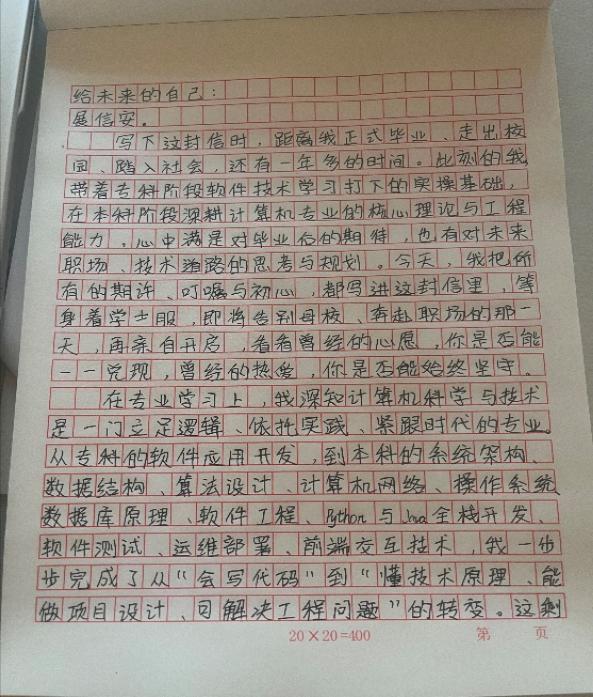 给未来的自己：
展信安。
写下这封信时，距离我正式毕业、走出校
园、踏入社会，还有一年多的时间。此刻的我，
带着专科阶段软件技术学习打下的实操基础，
在本科阶段深耕计算机专业的核心理论与工程
能力。心中满是对毕业后的期待，也有对未来
职场、技术道路的思考与规划。今天，我把所
有的期许、叮嘱与初心，都写进这封信里，等
身着学士服，即将告别母校、奔赴职场的那一
天，再亲自开启，看看曾经的心愿，你是否能
一一兑现，曾经的热爱，你是否能始终坚守。
在专业学习上，我深知计算机科学与技术
是一门立足逻辑、依托实践、紧跟时代的专业。
从专科的软件应用开发，到本科的系统架构、
数据结构、算法设计、计算机网络、操作系统
数据库原理、软件工程、Python与Java全栈开发、
软件测试、运维部署、前端交互技术，我一步
步完成了从“会写代码”到“懂技术原理、能
做项目设计、可解决工程问题”的转变。这剩
20×20=400 第 页